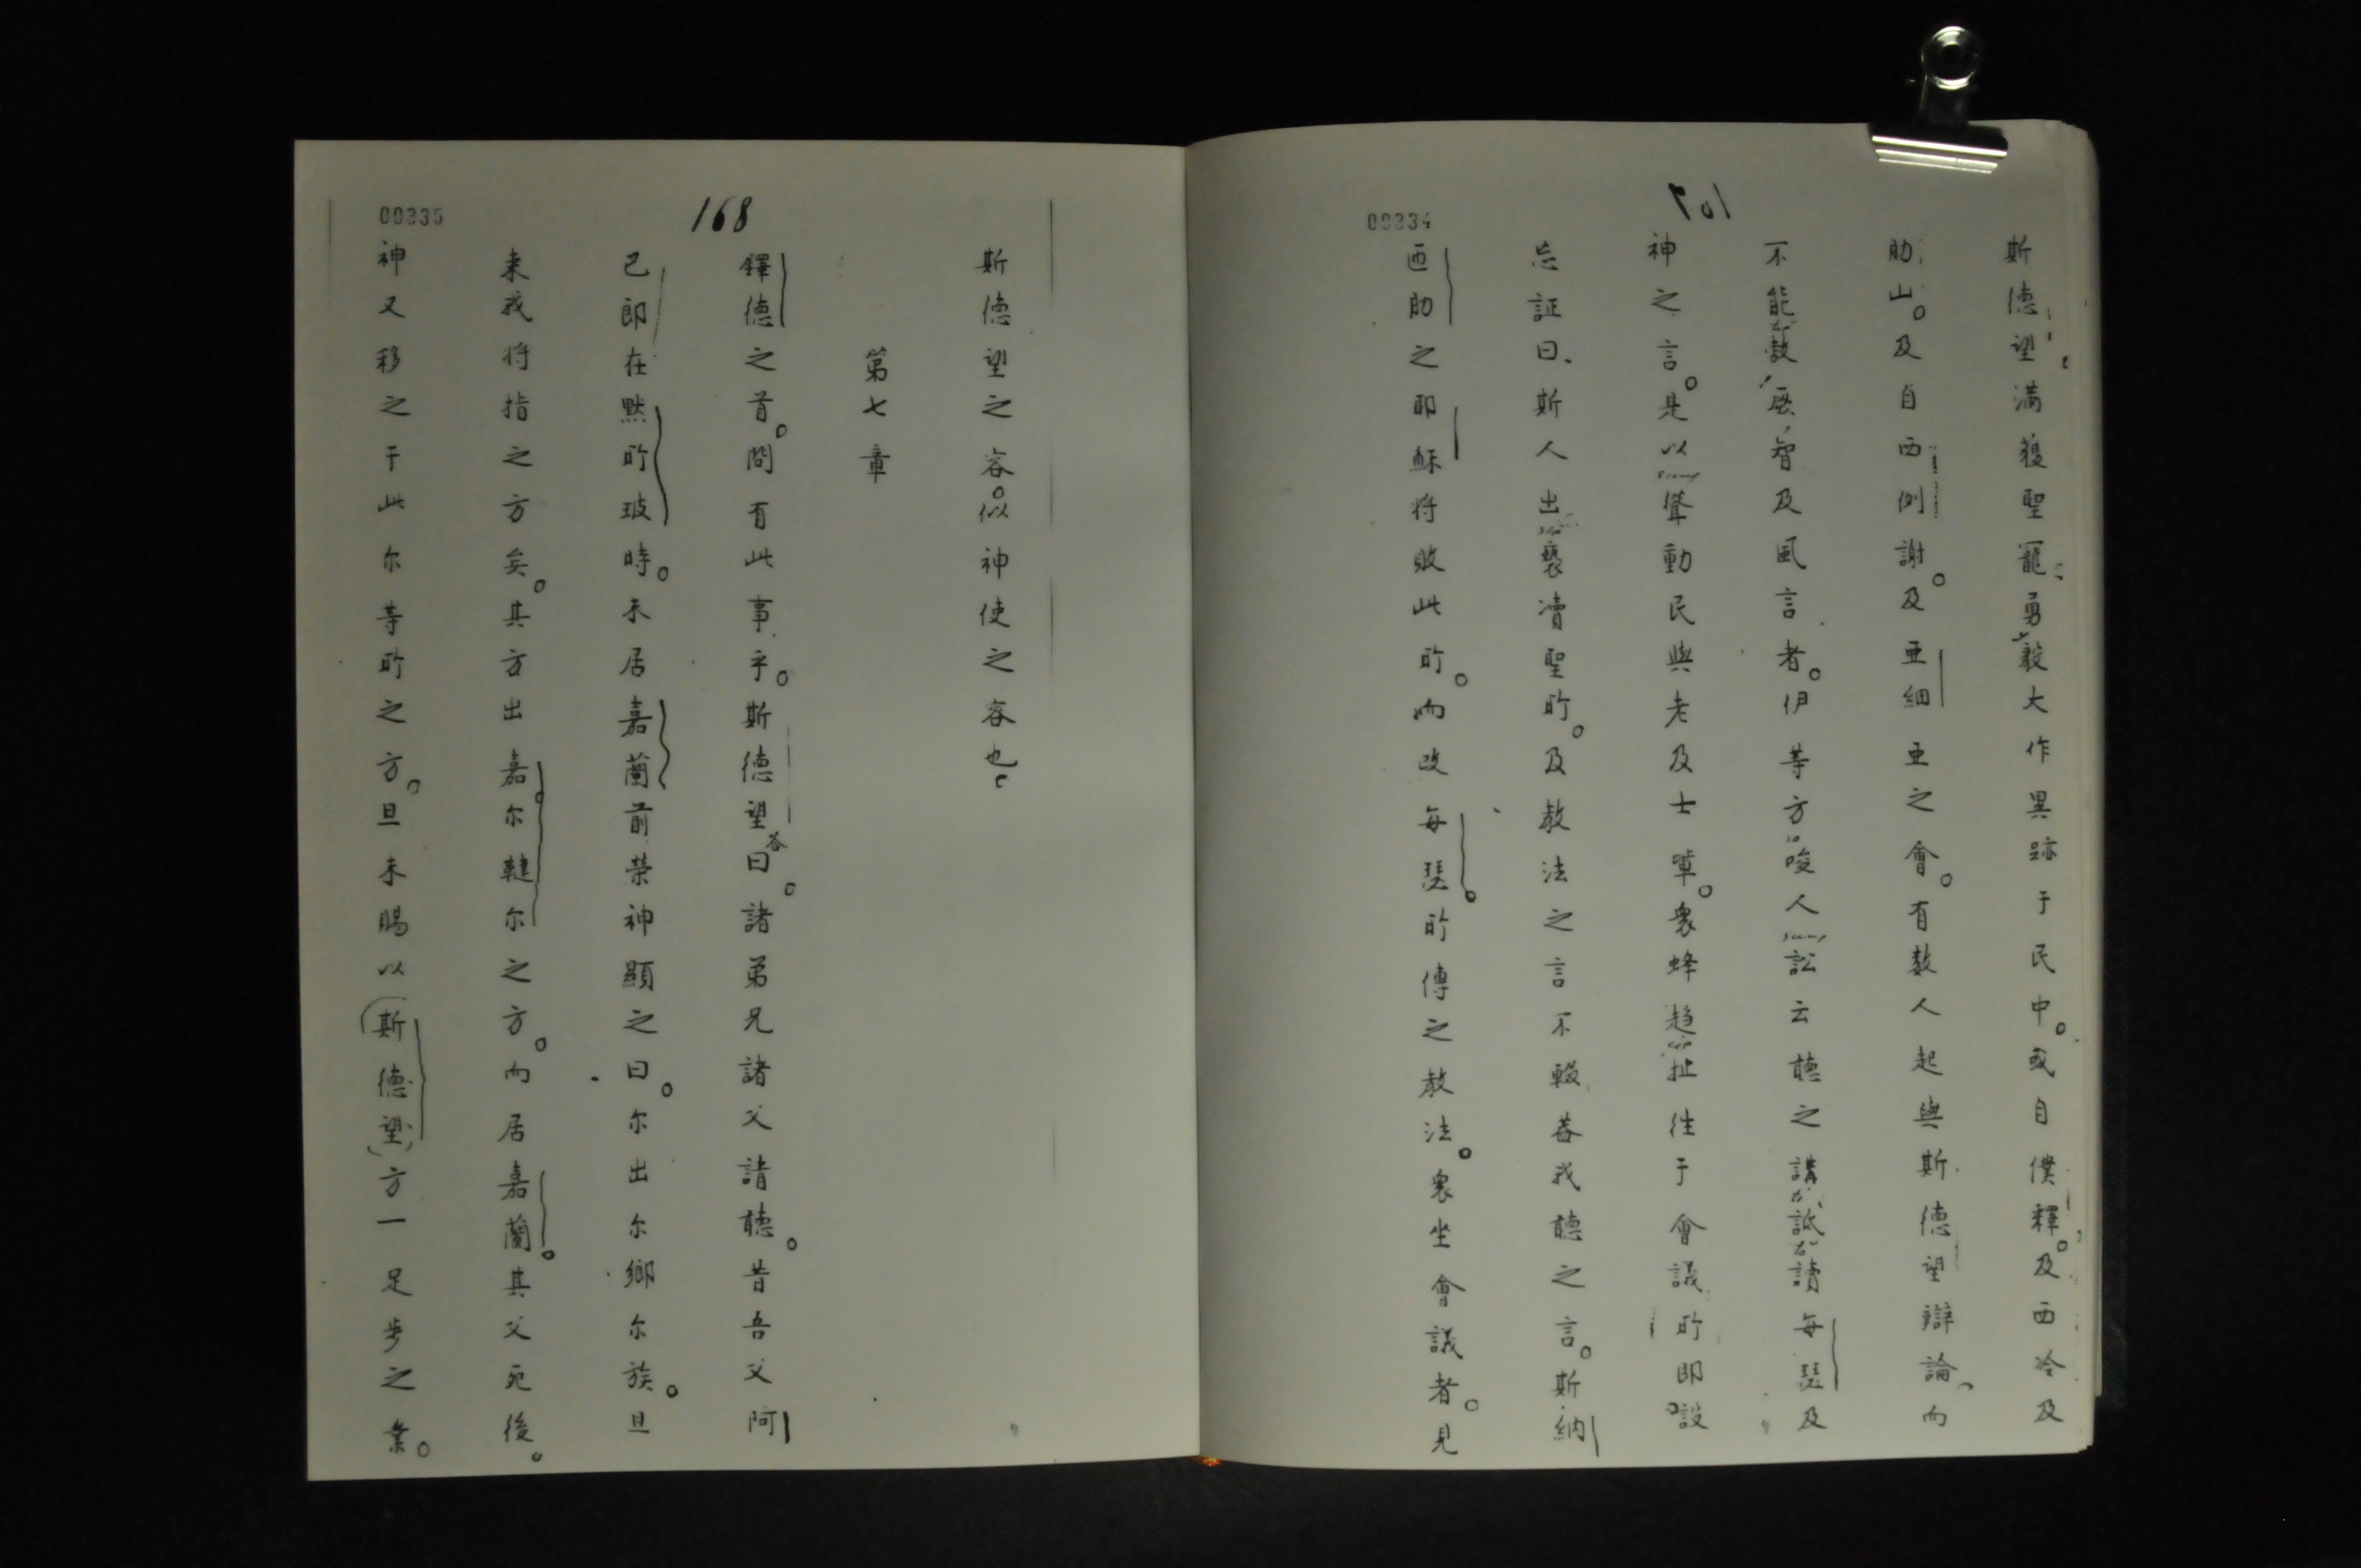 107
00334
斯德望滿獲聖寵勇毅大作異跡于民中。或自僕釋。及西冷及
肋山。及自西例謝。及亜細亜之會。有数人起與斯德望辯論、而
不能敵厥智及風言者。伊等方唆人訟云聴之講詆讀每瑟及
神之言。是以聳動民與老及士軰。衆蜂趋扯徃于會議所即設
忘証曰、斯人出褻凟聖所。及教法之言不輟葢我聴之言。斯納
匝肋之耶穌将敗此所。而改每瑟。所傳之教法。衆坐會議者。見
168
00335
斯德望之容。似神使之容也。
第七章
鐸德之首。問有此事乎。斯德望答曰。諸弟兄諸父請聴。昔吾父阿
巴郎在黙所玻時。未居嘉蘭前荣神顯之曰。尔出尔鄉尔族。且
来我将指之方矣。其方出嘉尔韃尔之方。而居嘉蘭。其父死後。
神又移之于此尔等所之方。且未賜以(斯德望)方一足歩之業。